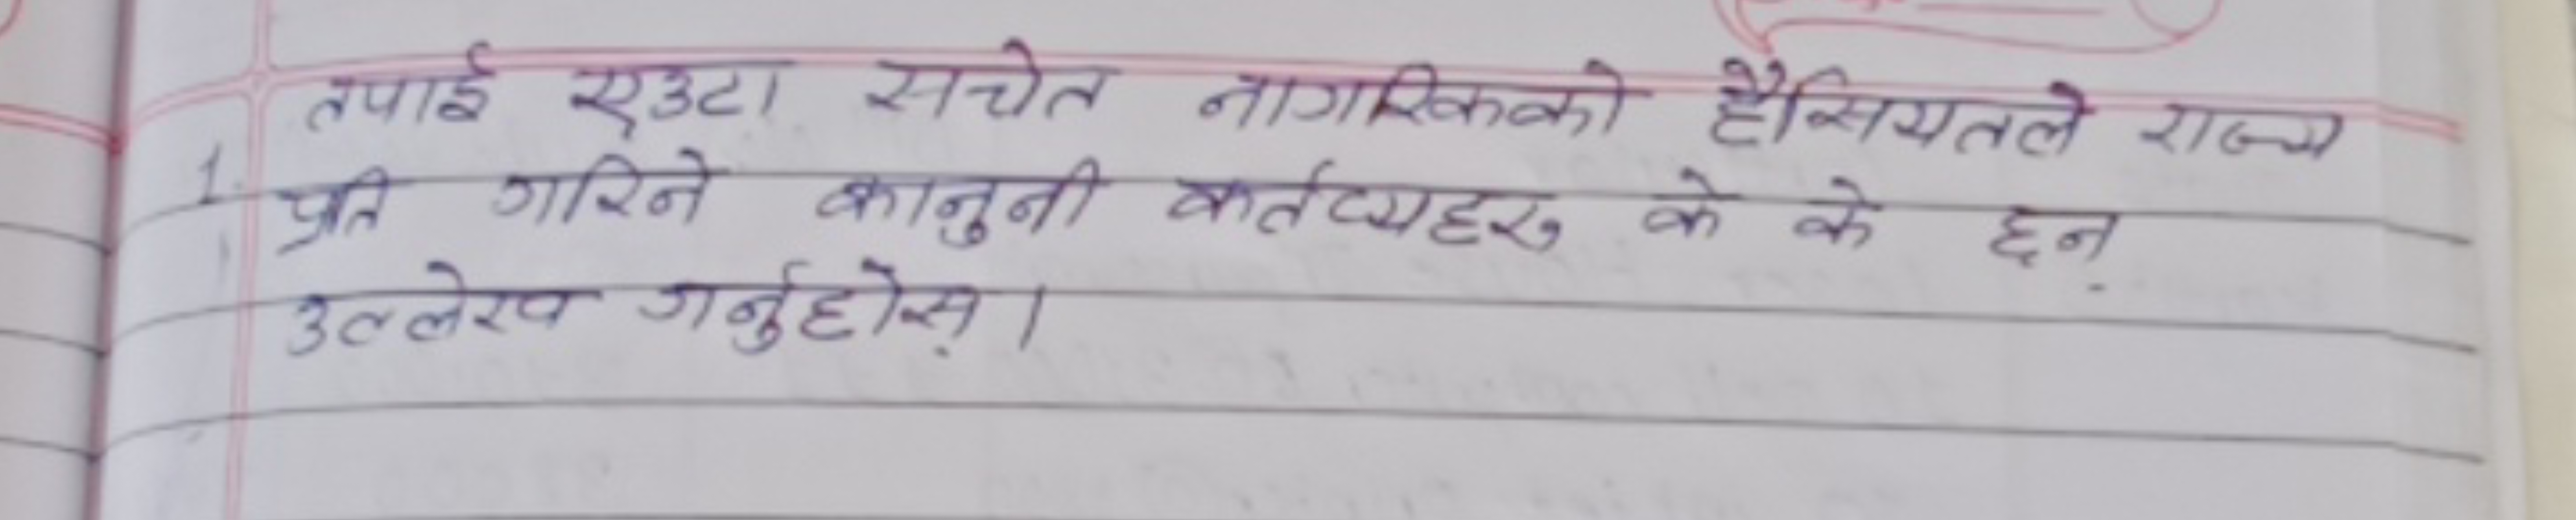 तपाई एउटा सचेत नागरिकको हैसियतले राज्य
1. प्रति गरिने कानुनी कर्तव्यहरु के के छन्
उल्लेख गर्नुहोस् ।